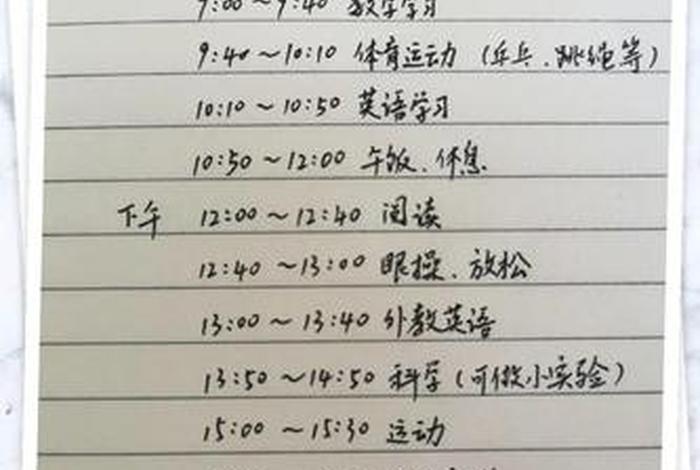 9:00～9:40 数学学习
9:40～10:10 体育运动（乒乓、跳绳等）
10:10～10:50 英语学习
10:50～12:00 午饭、休息
下午 12:00～12:40 阅读
12:40～13:00 眼操、放松
13:00～13:40 外教英语
13:50～14:50 科学（可做小实验）
15:00～15:30 运动